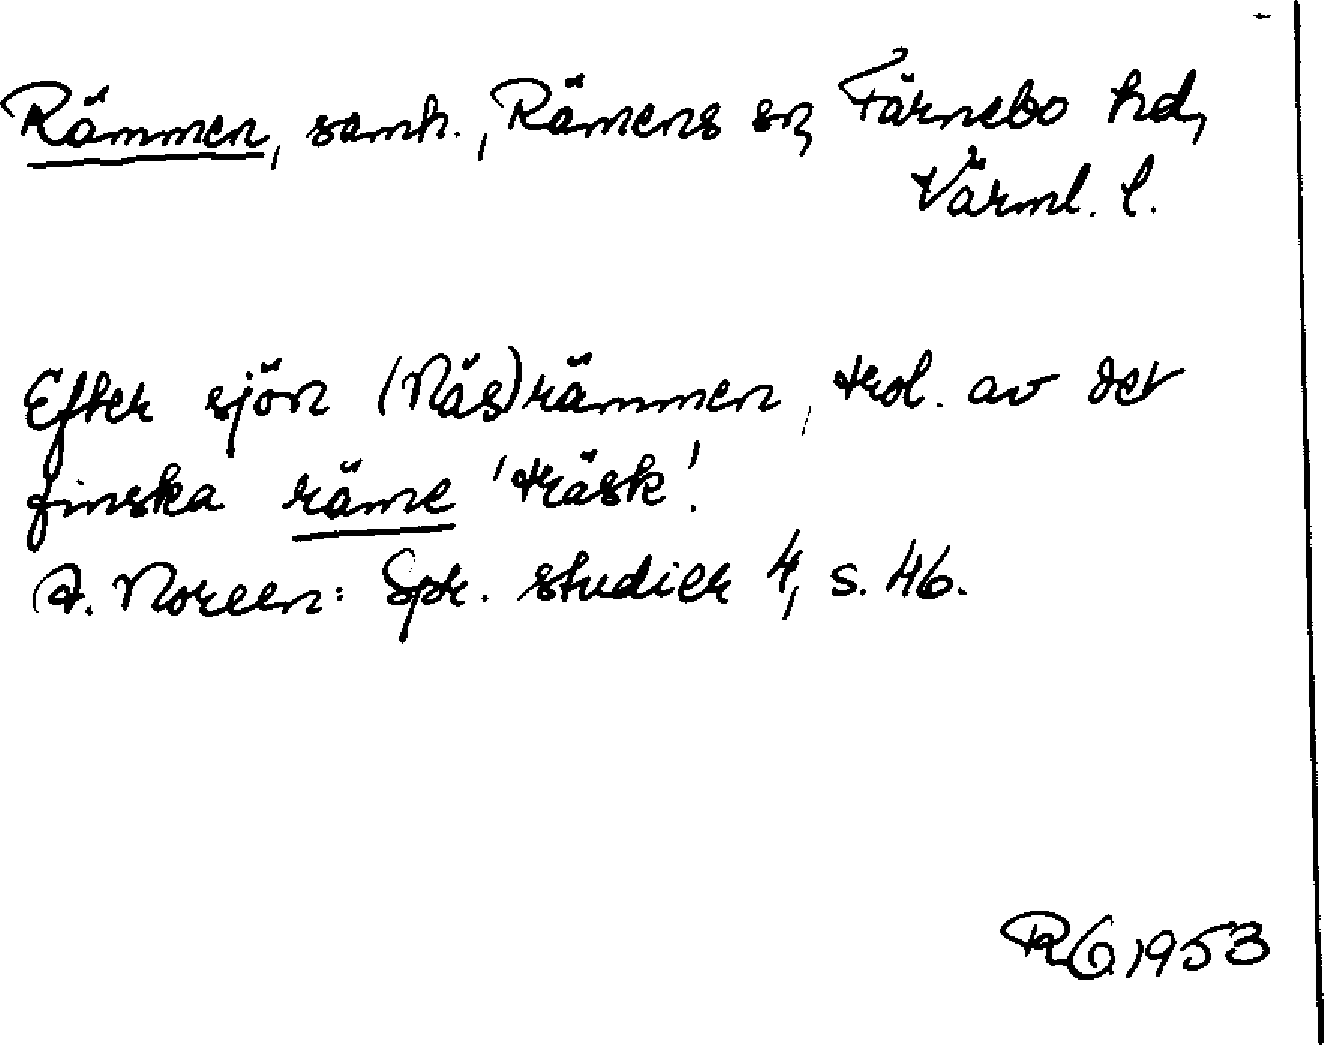 Rämmen, samh., Rämens sn, Färnebo hd,
Värml. l.
Efter sjön (Näs)rämmen, trol. av det
finska räme 'träsk'.
A. Noreen: Spr. studier 4, s. 46.
1953